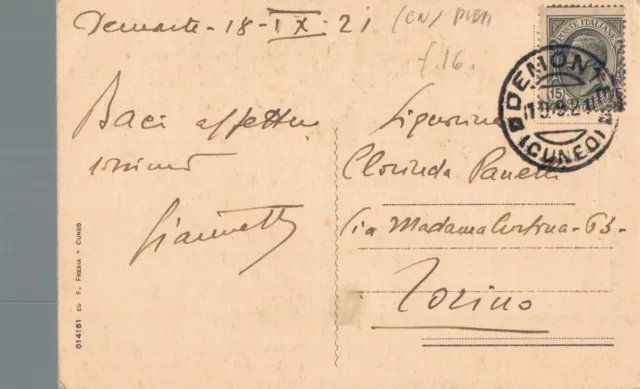 Demonte - 18 - IX - 21
(CN)
f 16.
POSTE ITALIANE
15
DEMONTE
19.9.21
(CUNEO)
Baci affettuo
sissimi
Giannetto
Signorina
Clorinda Panetti
Via Madama Cristina - 63 -
Torino
014161 ED. F. FRESIA - CUNEO